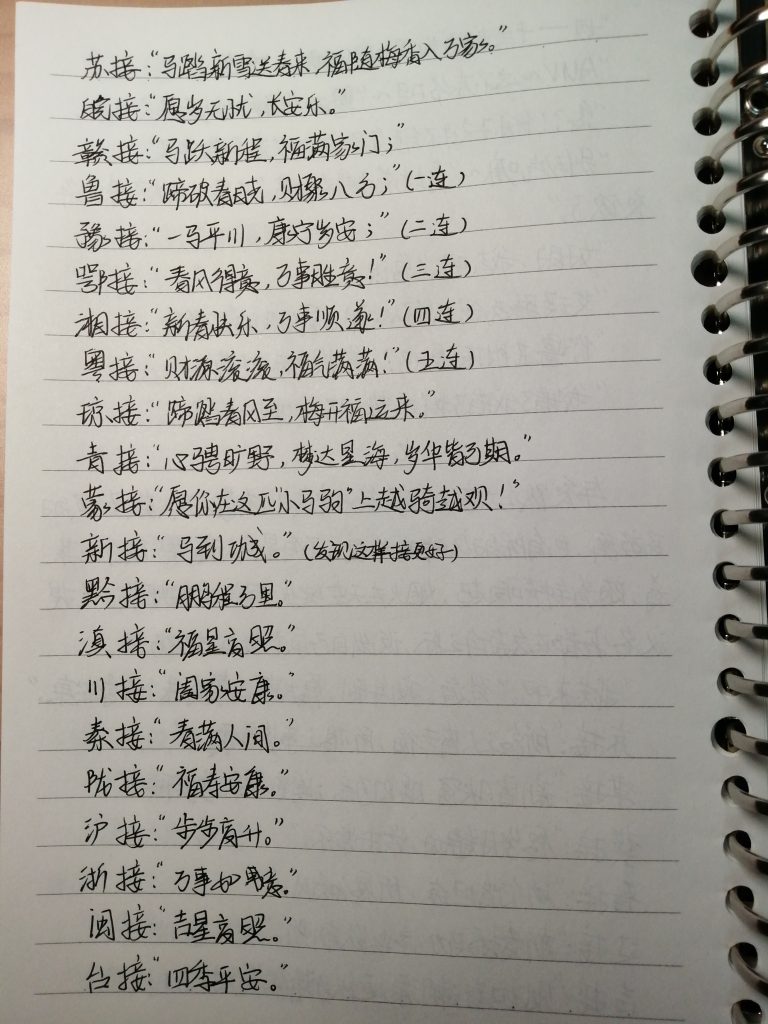 苏接：“马踏新雪送春来，福随梅香入万家。”
皖接：“愿岁无忧，长安乐。”
赣接：“马跃新程，福满家门；”
鲁接：“蹄破春晓，财聚八方；”（一连）
豫接：“一马平川，康宁岁安；”（二连）
鄂接：“春风得意，万事胜意！”（三连）
湘接：“新春快乐，万事顺遂！”（四连）
粤接：“财源滚滚，福气满满！”（五连）
琼接：“蹄踏春风至，梅开福运来。”
青接：“心骋旷野，梦达星海，岁华皆可期。”
蒙接：“愿你在这匹“小马驹”上越骑越欢！”
新接：“马到功成。”（发现这样接更好）
黔接：“鹏程万里。”
滇接：“福星高照。”
川接：“阖家安康。”
秦接：“春满人间。”
陇接：“福寿安康。”
沪接：“步步高升。”
浙接：“万事如意。”
闽接：“吉星高照。”
台接：“四季平安。”